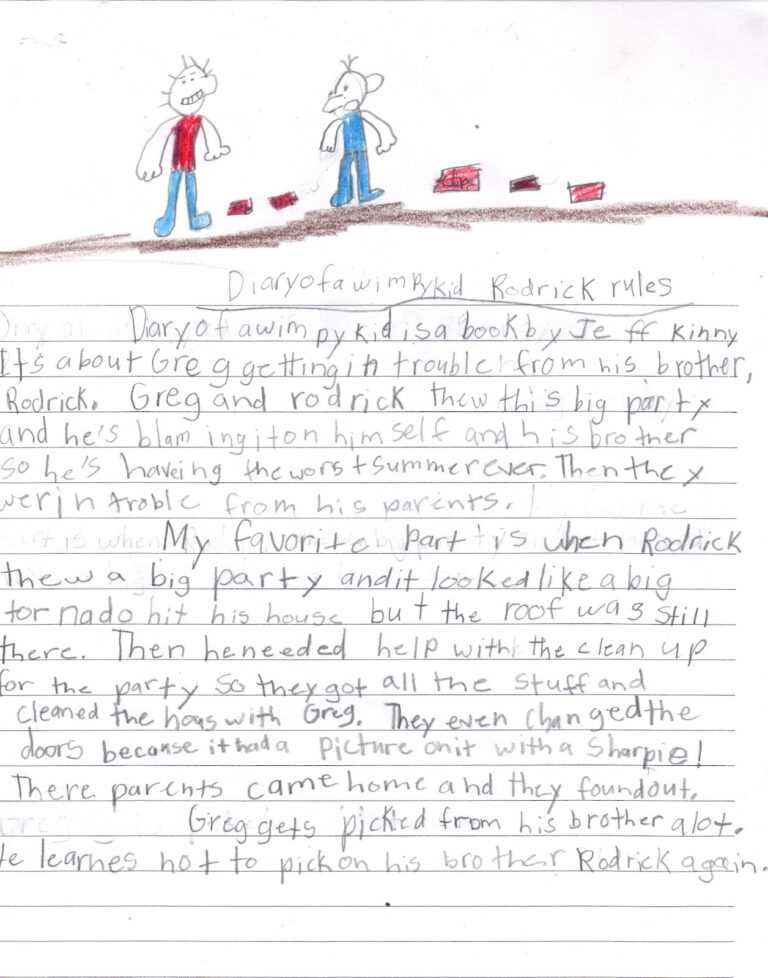 Diary of a wimpy kid Rodrick rules
Diary of a wimpy kid is a book by Jeff Kinny
It's about Greg getting in trouble from his brother,
Rodrick. Greg and rodrick thew this big party
and he's blaming it on himself and his brother
so he's haveing the worst summer ever. Then they
wer in troble from his parents.
My favorite part is when Rodrick
thew a big party and it looked like a big
tornado hit his house but the roof was still
there. Then he needed help with the clean up
for the party so they got all the stuff and
cleaned the hous with Greg. They even changed the
doors because it had a picture on it with a Sharpie!
There parents came home and they found out.
Greg gets picked from his brother alot.
He learnes not to pick on his brother Rodrick again.